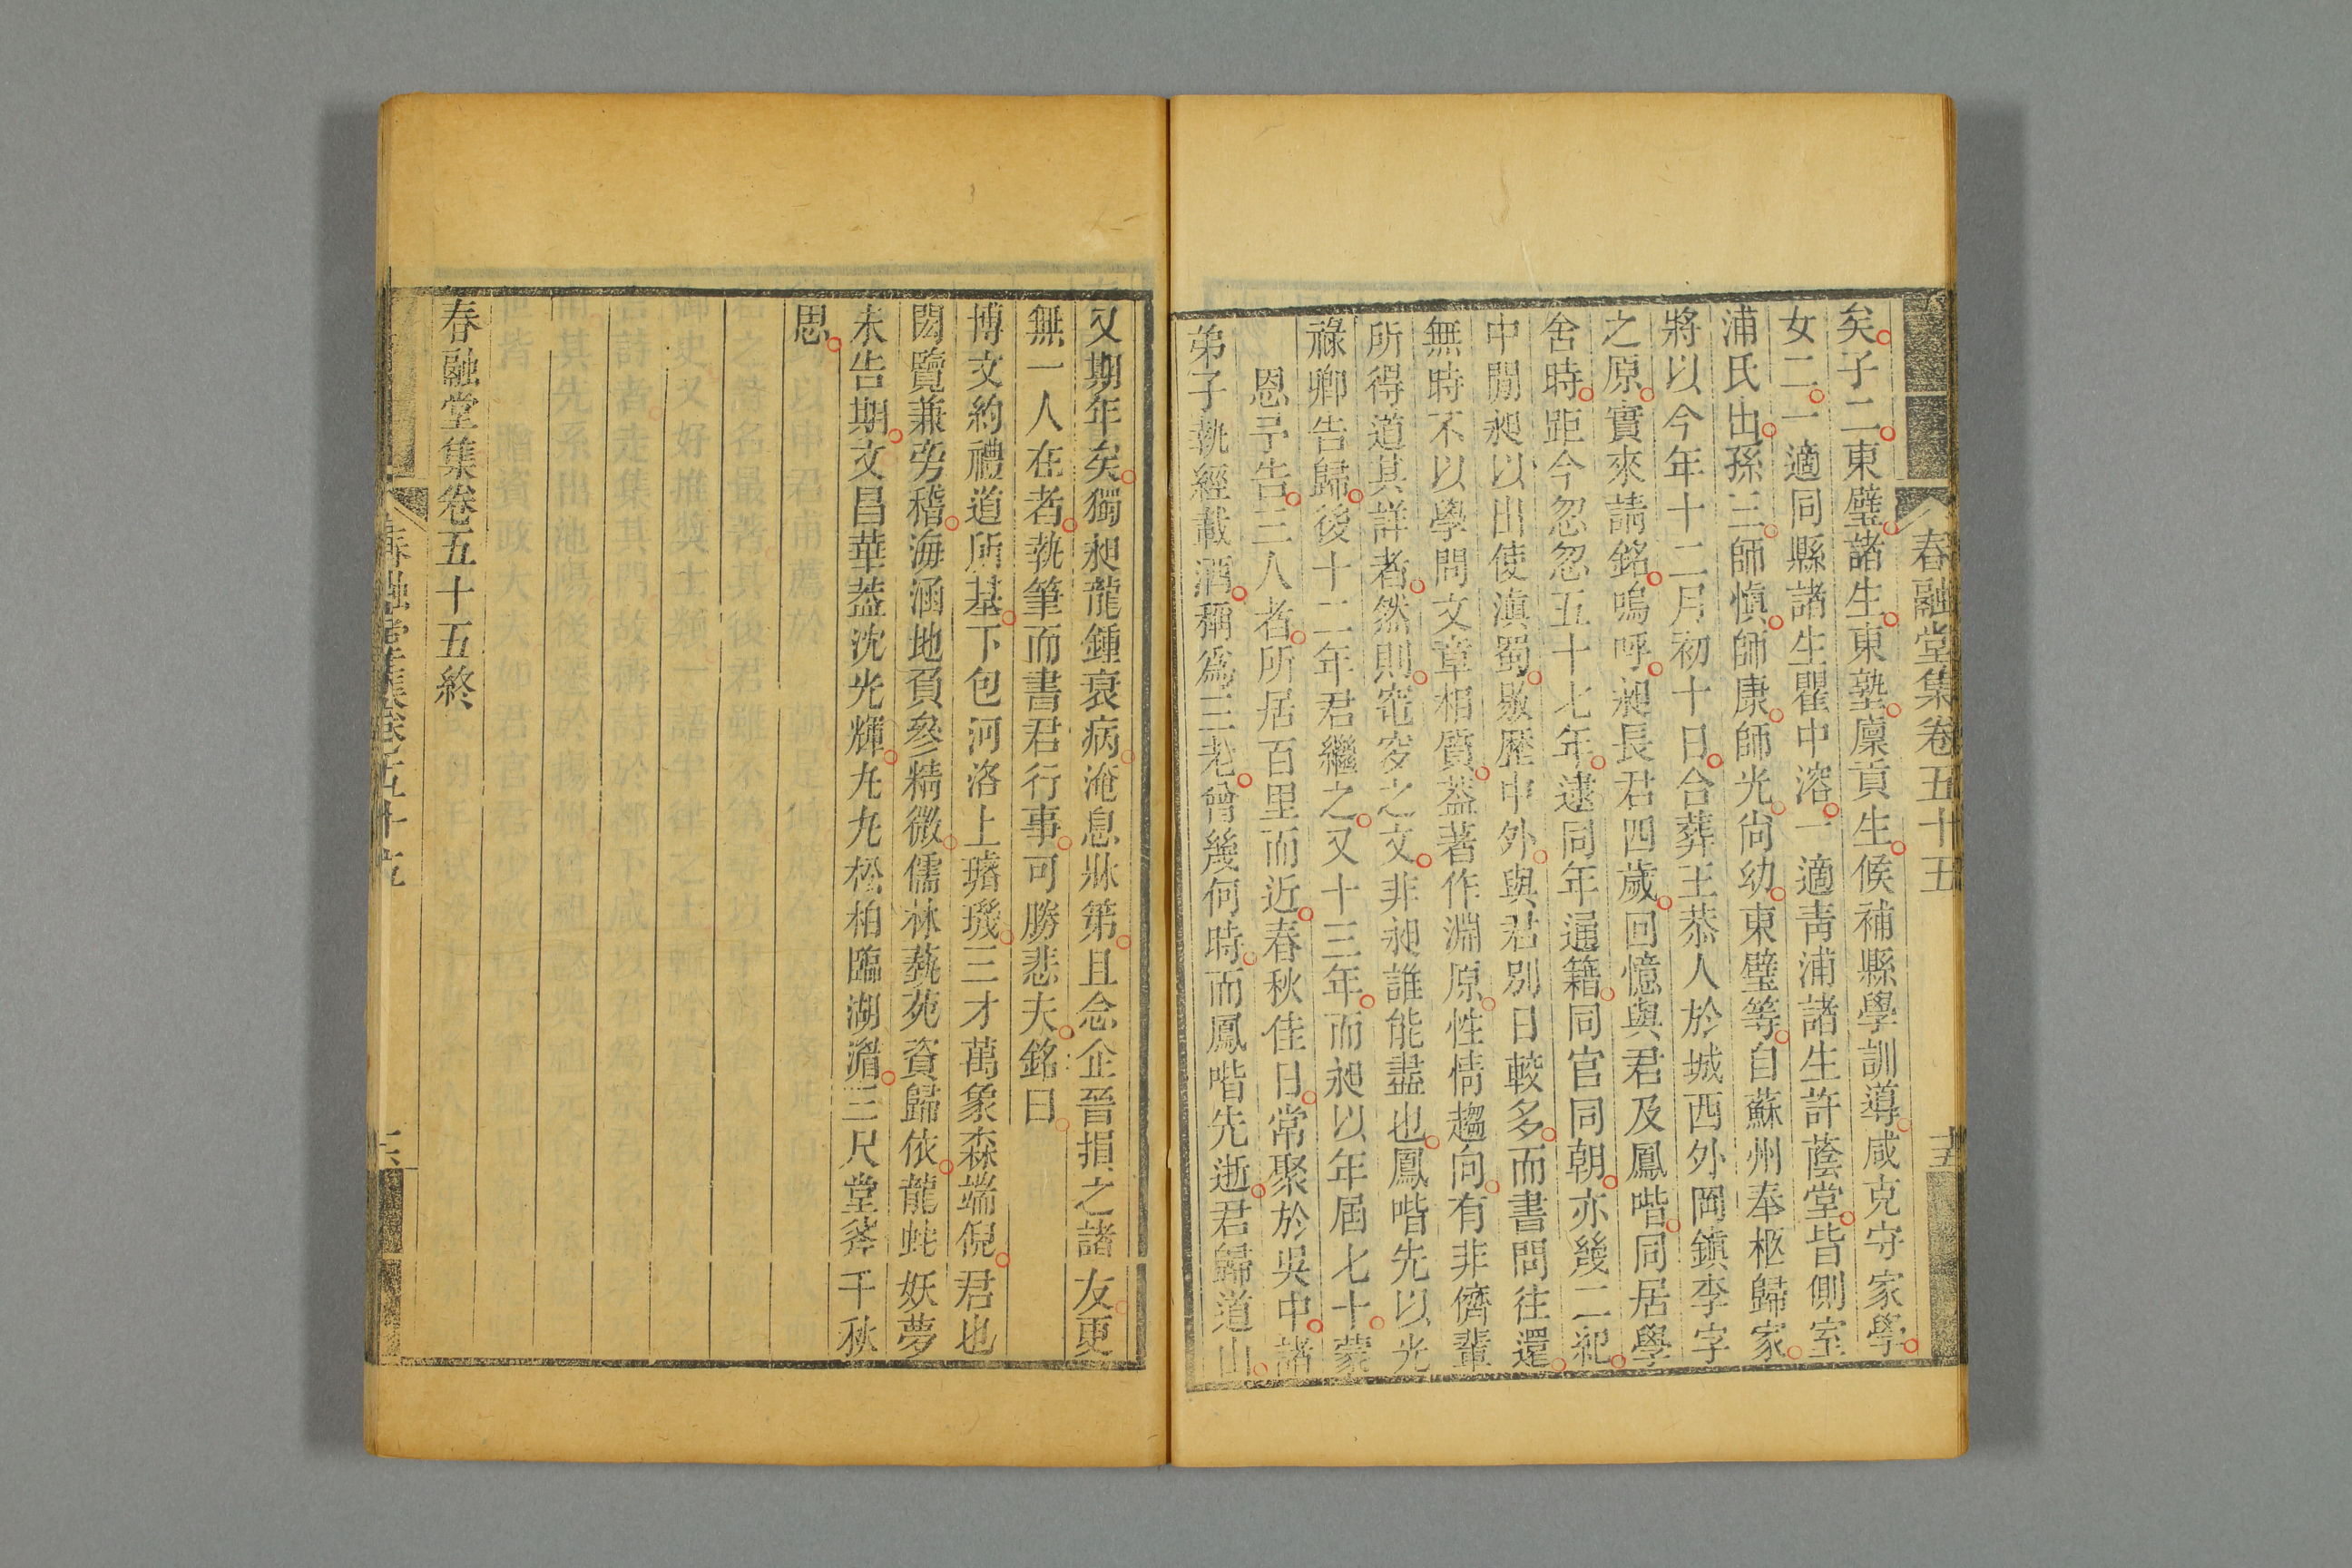 春融堂集卷五十五
十五
矣子二東璧諸生東塾廩貢生候補縣學訓導咸克守家學
女二一適同縣諸生瞿中溶一適青浦諸生許蔭堂皆側室
浦氏出孫三師愼師康師光尚幼東璧等自蘇州奉柩歸家
將以今年十二月初十日合葬王恭人於城西外岡鎭李字
之原實來請銘嗚呼昶長君四歲回憶與君及鳳喈同居學
舍時距今忽忽五十七年逮同年通籍同官同朝亦幾二紀
中閒昶以出使滇蜀敭歷中外與君別日較多而書問往還
無時不以學問文章相質葢著作淵原性情趨向有非儕輩
所得道其詳者然則窀穸之文非昶誰能盡也鳳喈先以光
祿卿告歸後十二年君繼之又十三年而昶以年屆七十蒙
恩予告三人者所居百里而近春秋佳日常聚於吳中諸
弟子執經載酒稱爲三老曾幾何時而鳳喈先逝君歸道山
又期年矣獨昶龍鍾衰病淹息牀第且念企晉損之諸友更
無一人在者執筆而書君行事可勝悲夫銘曰
博文約禮道所基下包河洛上璿璣三才萬象森端倪君也
閎覽兼旁稽海涵地負參精微儒林藝苑資歸依龍蛇妖夢
未告期文昌華葢沈光輝丸丸松柏臨湖湄三尺堂斧千秋
思
春融堂集卷五十五終
春融堂集卷五十五